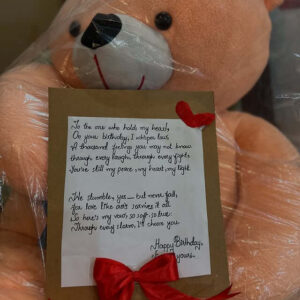 To the one who holds my heart,
On your birthday, I whisper
A thousand feelings you may not know
through every laugh, through every fight
You're still my peace, my heart, my light

We stumble, yes — but never fall,
love like ours survives it all
So here's my vow, so soft so true:
Through every storm, I'll choose you.

Happy Birthday,
yours.